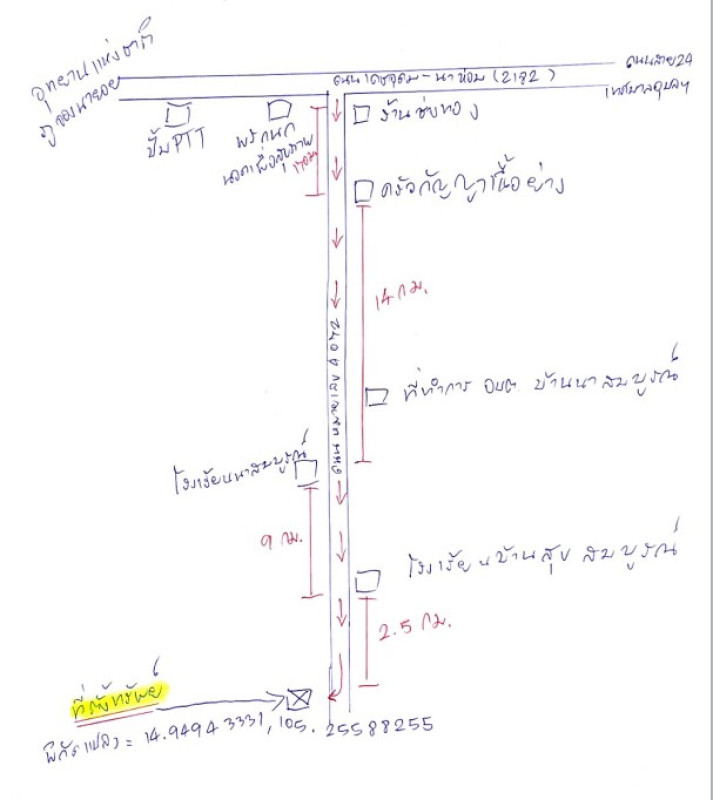 อุทยานแห่งชาติ
ภูจองนายอย
ถนนเดชอุดม - นาห่อม (2192)
ถนนสาย 24
เทศบาลอุบลฯ
ปั๊ม PTT
นวดเพื่อสุขภาพ
170 ม.
ร้านช่างทอง
ครัวกัญญาเนื้อย่าง
14 กม.
ถนน
ที่ทำการ อบต. บ้านนาสมบูรณ์
โรงเรียนนาสมบูรณ์
9 กม.
โรงเรียนบ้านสุขสมบูรณ์
2.5 กม.
ที่ตั้งทรัพย์
พิกัดแปลง = 14.94943331, 105.25588255